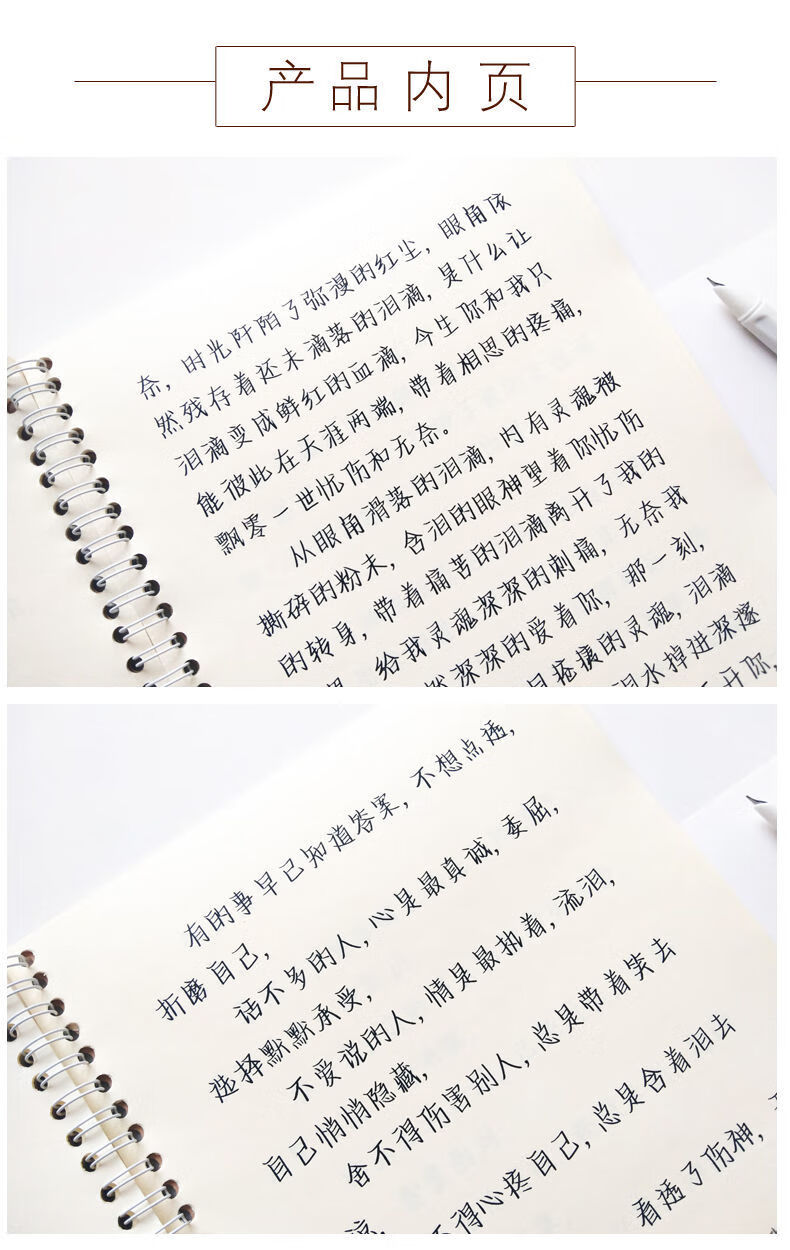 产品内页
奈，时光阡陌了弥漫的红尘，眼角依
然残存着还未滴落的泪滴，是什么让
泪滴变成鲜红的血滴，今生你和我只
能彼此在天涯两端，带着相思的疼痛，
飘零一世忧伤和无奈。
从眼角滑落的泪滴，内有灵魂被
撕碎的粉末，含泪的眼神望着你忧伤
的转身，带着痛苦的泪滴离开了我的
给我灵魂深深的刺痛，无奈我
深深的爱着你，那一刻，
疮痍的灵魂，泪滴
水掉进深邃
开你，
有的事早已知道答案，不想点透，
折磨自己，
话不多的人，心是最真诚，委屈，
选择默默承受，
不爱说的人，情是最执着，流泪，
自己悄悄隐藏，
舍不得伤害别人，总是带着笑去
不得心疼自己，总是含着泪去
看透了伤神，